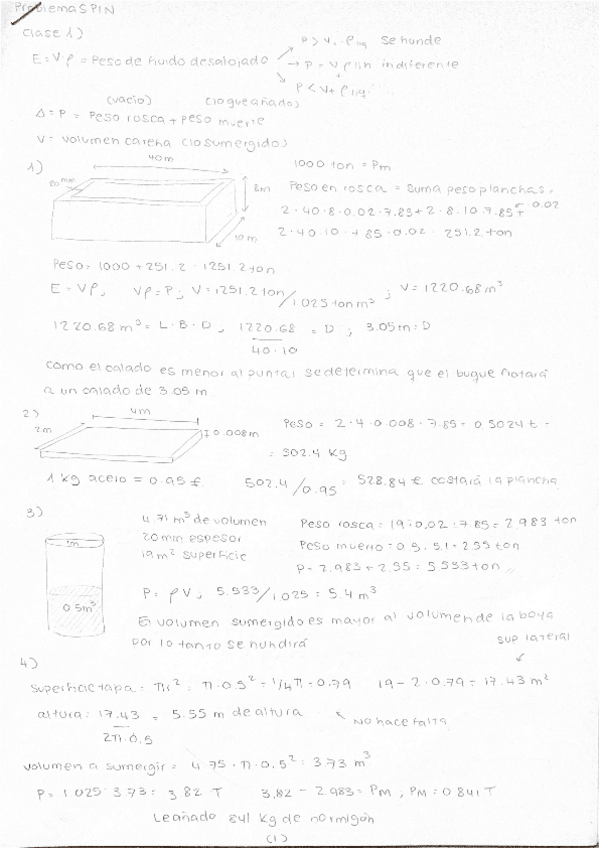 Problemas PIN
Clase 1)
P > V · ρ liq se hunde
E = V ρ = Peso de fluido desalojado → P = V ρ lin indiferente
P < V + ρ liq
(vacio) (lo que añado)
Δ = P = Peso rosca + peso muerte
V = volumen carena (lo sumergido)
1) 40m 1000 ton = Pm
20mm 8m Peso en rosca = suma peso planchas =
2 · 40 · 8 · 0.02 · 7.85 + 2 · 8 · 10 · 7.85 + 0.02
10m 2 · 40 · 10 · 7.85 · 0.02 = 251.2 ton
Peso = 1000 + 251.2 = 1251.2 ton
E = Vρ, Vρ = P; V = 1251.2 ton / 1.025 ton m³ ; V = 1220.68 m³
1220.68 m³ = L · B · D, 1220.68 = D ; 3.05 m = D
40 · 10
como el calado es menor al puntal se determina que el buque flotará
a un calado de 3.05 m
2) 4m Peso = 2 · 4 · 0.008 · 7.85 = 0.5024 t =
2m 0.008m = 502.4 kg
1 kg acero = 0.95 € 502.4 / 0.95 = 528.84 € costará la plancha
3) 4.71 m³ de volumen Peso rosca = 19 · 0.02 · 7.85 = 2.983 ton
1m 20 mm espesor Peso muerto = 0.5 · 5.1 = 2.55 ton
19 m² superficie P = 2.983 + 2.55 = 5.533 ton
0.5m³ P = ρV; 5.533/1.025 = 5.4 m³
El volumen sumergido es mayor al volumen de la boya
por lo tanto se hundirá sup lateral
4)
Superficie tapa = πr² = π · 0.5² = 1/4 π = 0.79 19 - 2 · 0.79 = 17.43 m²
altura: 17.43 = 5.55 m de altura No hace falta
2π · 0.5
volumen a sumergir = 4.75 · π · 0.5² = 3.73 m³
P = 1.025 · 3.73 = 3.82 T 3.82 - 2.983 = PM ; PM = 0.841 T
Le añado 841 kg de hormigón
(1)